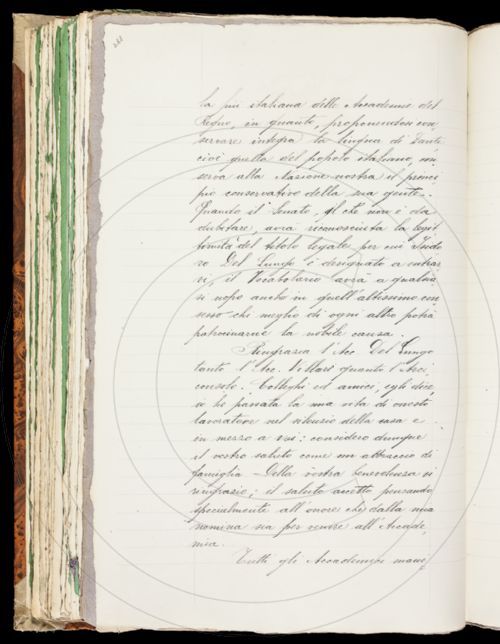 la più italiana delle Accademie del
Regno, in quanto, proponendosi con,
servare integra la lingua di Dante
cioè quella del popolo italiano, con
serva alla Nazione nostra il princi,
pio conservativo della sua gente.
Quando il Senato, il che non è da
dubitare, avrà riconosciuta la legit
timità del titolo legale per cui Isido
ro Del Lungo è designato a entrar
vi, il Vocabolario avrà a qualsia
si uopo anche in quell'altissimo con
sesso chi meglio di ogni altro potrà
patrocinarne la nobile causa.
Ringrazia l'Acc. Del Lungo
tanto l'Acc. Villari quanto l'Arci,
consolo. Colleghi ed amici, egli dice,
vi ho passata la mia vita di onesto
lavoratore nel silenzio della casa e
in mezzo a voi: considero dunque
il vostro saluto come un abbraccio di
famiglia - Della vostra benevolenza vi
ringrazio; il saluto accetto pensando
specialmente all'onore che dalla mia
nomina sia per venire all'Accade,
mia.
Tutti gli Accademici mani,